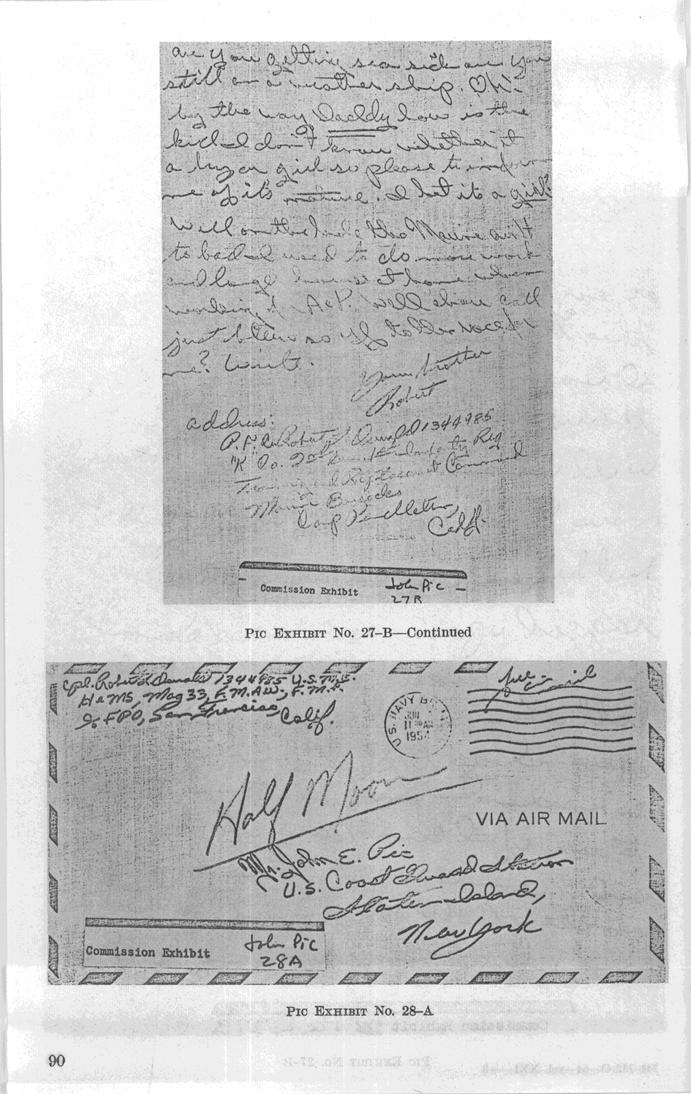 are you getting sea sick are you
still on a weather ship. Oh!
by the way Daddy how is the
kid I don't know whether it
a boy or girl so please to inform
me of its nature. I bet its a girl?
Well on the whole the Marine ain't
to bad I used to do more work
and longer hours at home when
working for A&P. Well
just better so
me? Write.
Your brother
Robert
address:
Pvt Robert Oswald 1344985
"K" Co. 2nd Bn. Infantry Reg
Training and Replacement Command
Marine Barracks
Camp Pendleton,
Calif.
Commission Exhibit John Pic
27B
PIC EXHIBIT No. 27–B—Continued
Cpl. Robert Oswald 1344985 U.S.M.C.
H&MS, Mag 33, F.M.A.W., F.M.F.
% FPO, San Francisco,
Calif.
U.S. NAVY
JUN
11
1954
free
air mail
Half Moon
VIA AIR MAIL
Mr. John E. Pic
U.S. Coast Guard Station
Staten Island,
New York
Commission Exhibit John Pic
28A
PIC EXHIBIT No. 28–A
90